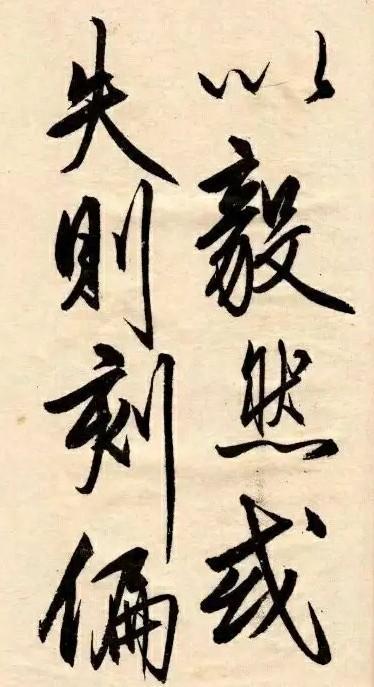 以毅然或
失则刻偏